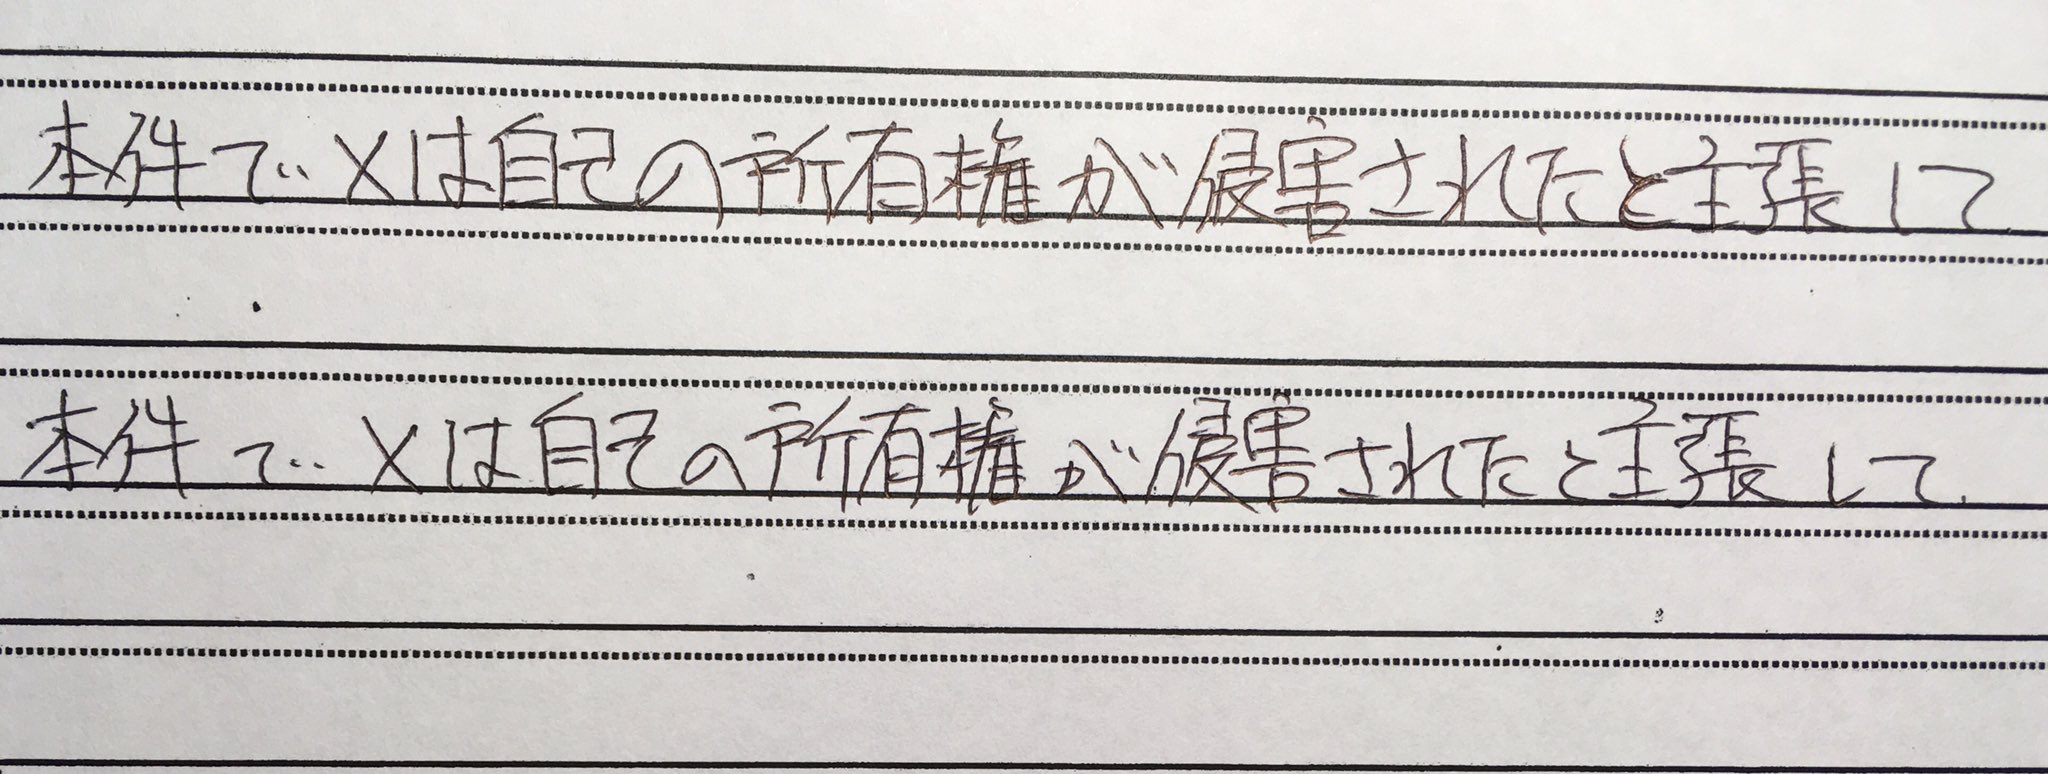 本件でXは自己の所有権が侵害されたと主張して
本件でXは自己の所有権が侵害されたと主張して